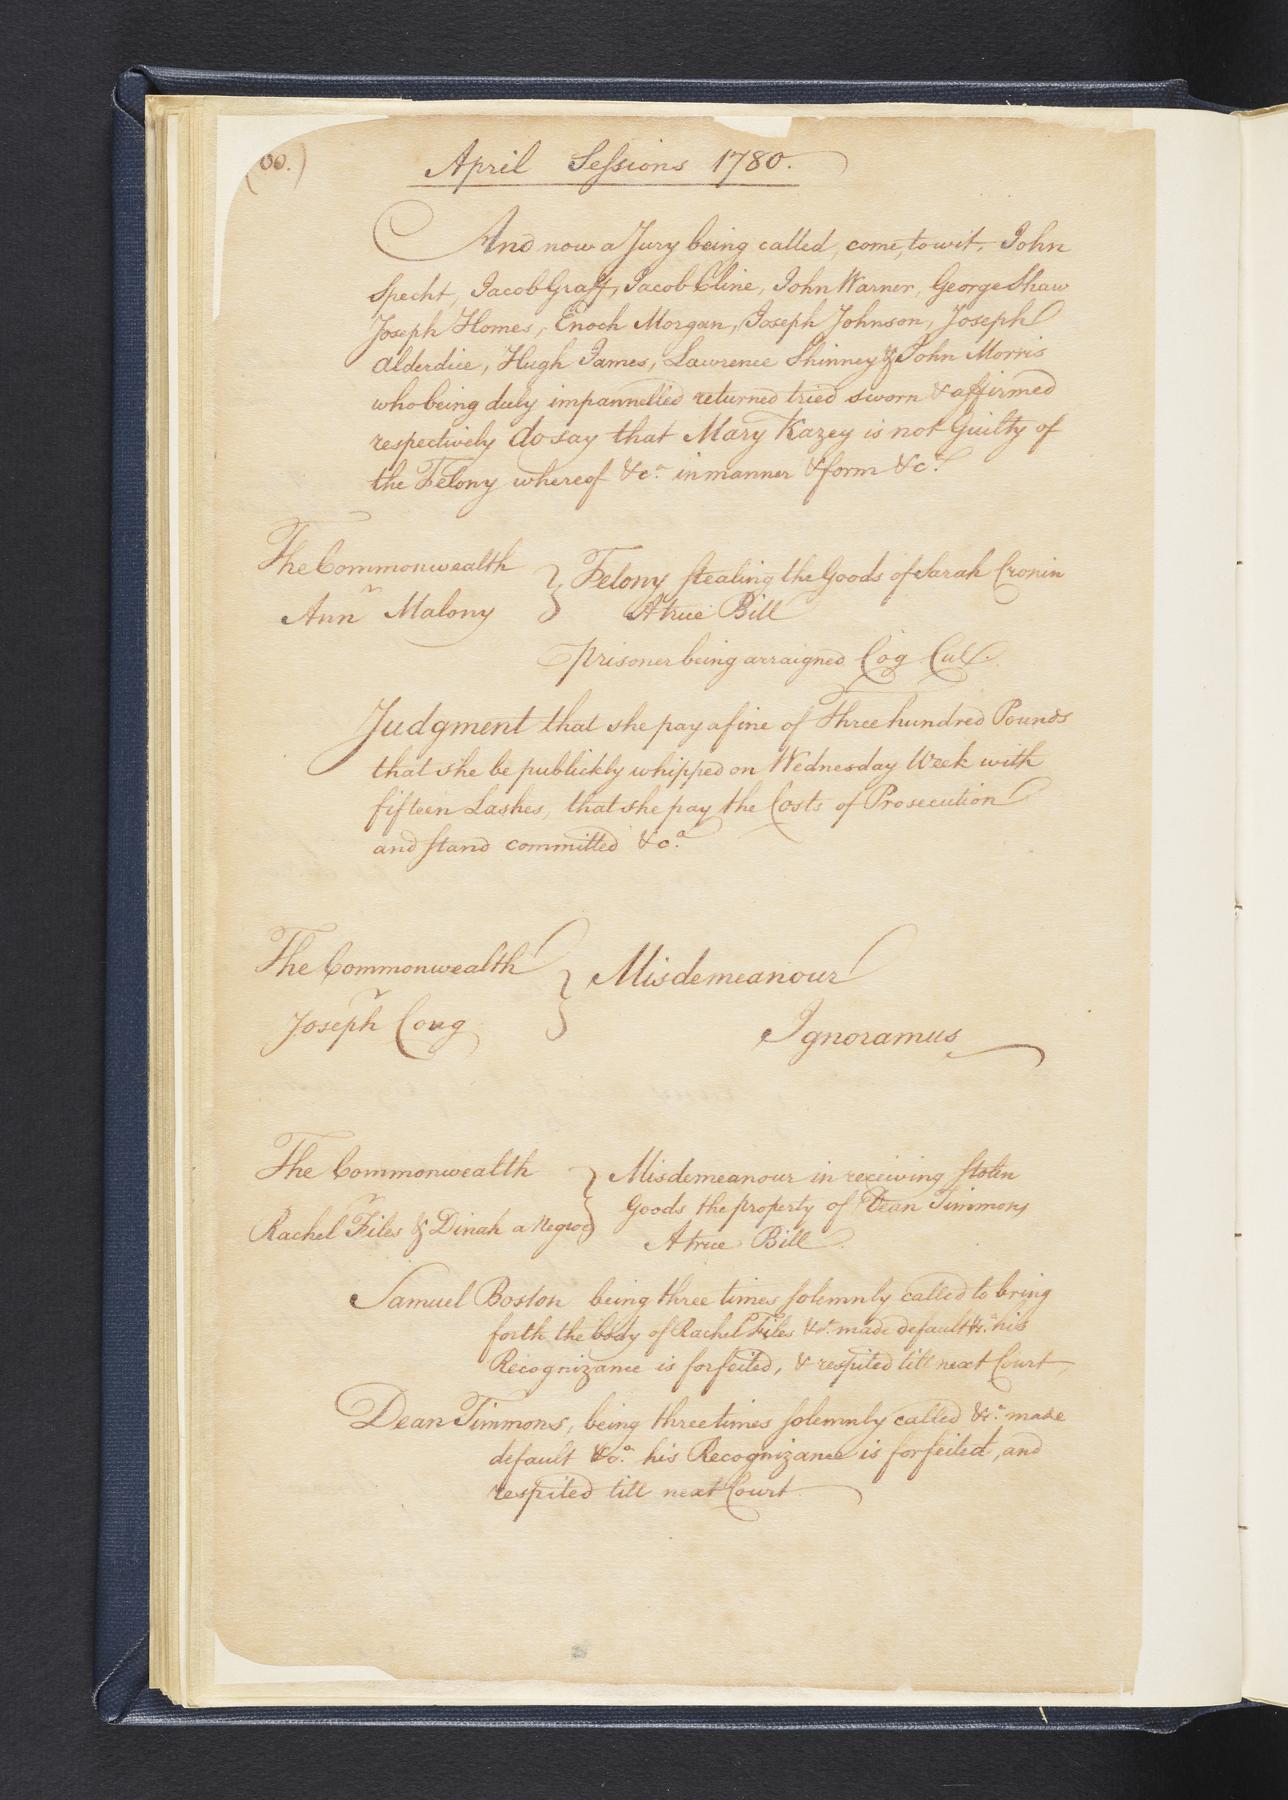 00.)
April Sessions 1780.
And now a Jury being called, come, towit, John
Specht, Jacob Graff, Jacob Cline, John Warner, George Shaw
Joseph Homes, Enoch Morgan, Joseph Johnson, Joseph
Alderdice, Hugh James, Lawrence Shinney & John Morris
who being duly impannelled returned tried sworn & affirmed
respectively do say that Mary Kazey is not Guilty of
the Felony whereof &c.a in manner & form &c.a
The Commonwealth } Felony Stealing the Goods of Sarah Cronin
v
Ann Malony A true Bill
Prisoner being arraigned Cog Cul.
Judgment that she pay a fine of Three hundred Pounds
that she be publickly whipped on Wednesday Week with
fifteen Lashes, that she pay the Costs of Prosecution
and stand committed &c.a
The Commonwealth } Misdemeanour
v
Joseph Ignoramus
The Commonwealth } Misdemeanour in receiving Stolen
v Goods the property of Dean Timmons
Rachel Files & Dinah a Negroe
A true Bill
Samuel Boston being three times solemnly called to bring
forth the body of Rachel Files &c.a made default &c.a his
Recognizance is forfeited, & respited till next Court
Dean Timmons, being three times solemnly called &c.a made
default &c.a his Recognizance is forfeited, and
respited till next Court